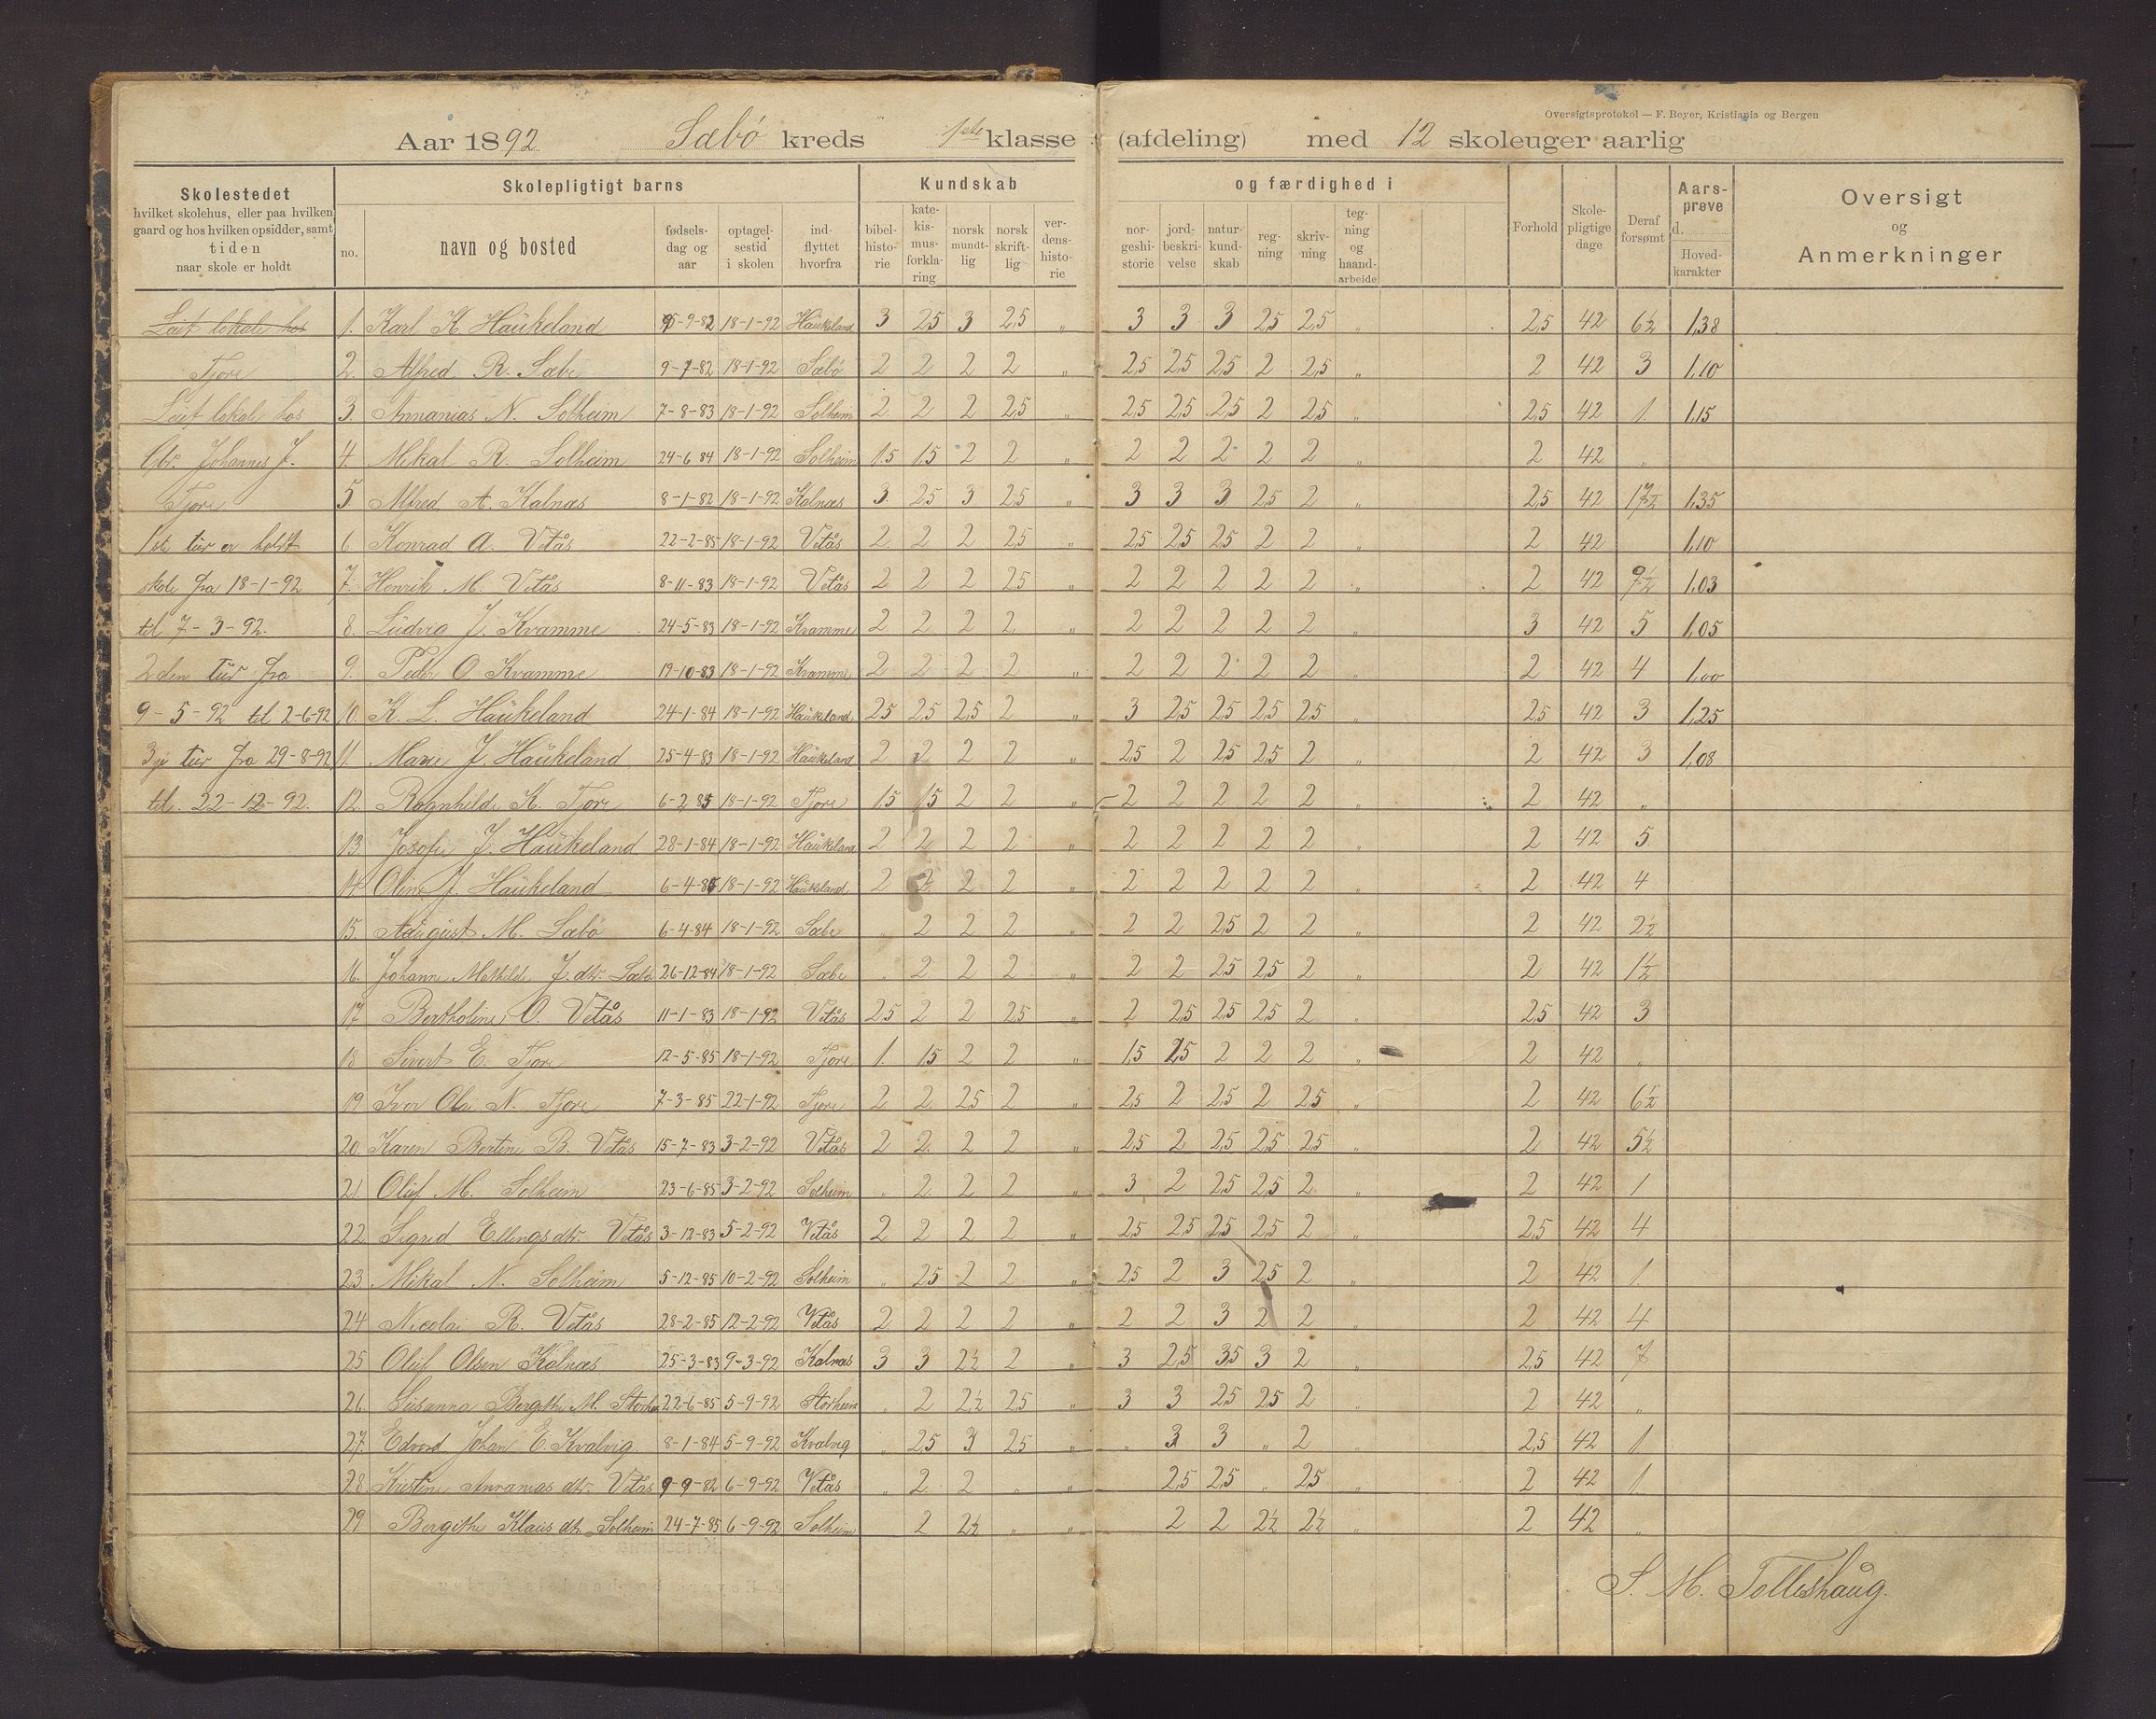 Oversigtsprotokol — F. Beyer, Kristiania og Bergen
Aar 1892 Sæbö kreds 1ste klasse (afdeling) med 12 skoleuger aarlig
Skolestedet
hvilket skolehus, eller paa hvilken
gaard og hos hvilken opsidder, samt
tiden
naar skole er holdt
Skolepligtigt barns
no. navn og bosted fødsels-dag og aar optagel-sestid i skolen ind-flyttet hvorfra
Kundskab og færdighed i
bibel-histo-rie kate-kis-mus-forkla-ring norsk mundt-lig norsk skrift-lig ver-dens-histo-rie nor-geshi-storie jord-beskri-velse natur-kund-skab reg-ning skriv-ning teg-ning og haand-arbeide
Forhold Skole-pligtige dage Deraf forsømt Aars-prøve d. Hoved-karakter
Oversigt
og
Anmerkninger
Leiet lokale hos
Tjore
Leiet lokal hos
Gbr. Johannes J.
Tjore
1ste tür er holdt
skole fra 18-1-92
til 7-3-92.
2den tür fra
9-5-92 til 2-6-92
3je tür fra 29-8-92
til 22-12-92.
1. Karl K. Haükeland 5-9-82 18-1-92 Haükeland 3 2,5 3 2,5 „ 3 3 3 2,5 2,5 „ 2,5 42 6½ 1,38
2. Alfred R. Sæbö 9-7-82 18-1-92 Sæbö 2 2 2 2 „ 2,5 2,5 2,5 2 2,5 „ 2 42 3 1,10
3. Annanias N. Solheim 7-8-83 18-1-92 Solheim 2 2 2 2,5 „ 2,5 2,5 2,5 2 2,5 „ 2,5 42 1 1,15
4. Mikal R. Solheim 24-6-84 18-1-92 Solheim 1,5 1,5 2 2 „ 2 2 2 2 2 „ 2 42 „
5 Alfred A. Kalnæs 8-1-82 18-1-92 Kalnæs 3 2,5 3 2,5 „ 3 3 3 2,5 2 „ 2,5 42 17½ 1,35
6. Konrad A. Vetås 22-2-85 18-1-92 Vetås 2 2 2 2,5 „ 2,5 2,5 2,5 2 2 „ 2 42 1,10
7. Henrik M. Vetås 8-11-83 18-1-92 Vetås 2 2 2 2,5 „ 2 2 2 2 2 „ 2 42 9½ 1,03
8. Lüdvig J. Kramme 24-5-83 18-1-92 Kramme 2 2 2 2 „ 2 2 2 2 2 „ 3 42 5 1,05
9. Peder O. Kramme 19-10-83 18-1-92 Kramme 2 2 2 2 „ 2 2 2 2 2 „ 2 42 4 1,00
10. K. L. Haükeland 24-1-84 18-1-92 Haükeland 2,5 2,5 2,5 2 „ 3 2,5 2,5 2,5 2,5 „ 2,5 42 3 1,25
11. Marie J. Haükeland 25-4-83 18-1-92 Haükeland 2 2 2 2 „ 2,5 2 2,5 2,5 2 „ 2 42 3 1,08
12. Ragnhilde K. Tjore 6-2-85 18-1-92 Tjore 1,5 1,5 2 2 „ 2 2 2 2 2 „ 2 42 „
13. Josefie J. Haükeland 28-1-84 18-1-92 Haükeland 2 2 2 2 „ 2 2 2 2 2 „ 2 42 5
14. Oline J. Haükeland 6-4-85 18-1-92 Haükeland 2 2 2 „ 2 2 2 2 2 „ 2 42 4
15. Aügüst M. Sæbö 6-4-84 18-1-92 Sæbö „ 2 2 2 „ 2 2 2,5 2 2 „ 2 42 2½
16. Johanne Mathilde J. dtr. Sæbö 26-12-84 18-1-92 Sæbö „ 2 2 2 „ 2 2 2,5 2,5 2 „ 2 42 1½
17 Bertholine O. Vetås 11-1-83 18-1-92 Vetås 2,5 2 2 2,5 „ 2 2,5 2,5 2,5 2 „ 2,5 42 3
18 Sivert E. Tjore 12-5-85 18-1-92 Tjore 1. 1,5 2 2 „ 1,5 2,5 2 2 2 „ 2 42 „
19 Iver Olai N. Tjore 7-3-85 22-1-92 Tjore 2 2 2,5 2 „ 2,5 2 2,5 2 2,5 „ 2 42 6½
20. Karen Bertine B. Vetås 15-7-83 3-2-92 Vetås 2 2 2 2 „ 2,5 2 2,5 2,5 2,5 „ 2 42 5½
21. Olüf M. Solheim 23-6-85 3-2-92 Solheim „ 2 2 2 „ 3 2 2,5 2,5 2 „ 2 42 1
22 Sigrid Ellings dtr. Vetås 3-12-83 5-2-92 Vetås 2 2 2 2 „ 2,5 2,5 2,5 2,5 2 „ 2,5 42 4
23 Mikal N. Solheim 5-12-85 10-2-92 Solheim „ 2,5 2 2 „ 2,5 2 3 2,5 2 „ 2 42 1
24 Nicolai R. Vetås 28-2-85 12-2-92 Vetås 2 2 2 2 „ 2 2 3 2 2 „ 2 42 4
25 Olüf Olsen Kalnæs 25-3-83 9-3-92 Kalnæs 3 3 2½ 2 „ 3 2,5 3,5 3 2 2,5 42 7
26. Süsanna Bergithe M. Storheim 22-6-85 5-9-92 Storheim „ 2 2½ 2,5 „ 3 3 2,5 2,5 2 „ 2 42 „
27. Edvard Johan E. Kvalvig 8-1-84 5-9-92 Kvalvig „ 2,5 3 2,5 „ „ 3 3 „ 2 „ 2,5 42 1
28. Kristine Annanias dtr. Vetås 9-9-82 6-9-92 Vetås „ 2 2 „ „ 2,5 2,5 „ 2,5 „ 2 42 1
29 Bergithe Klaüs dtr. Solheim 24-7-85 6-9-92 Solheim 2 2½ „ „ 2 2 2½ 2½ „ 2 42 „
S. M. Tolleshaug.